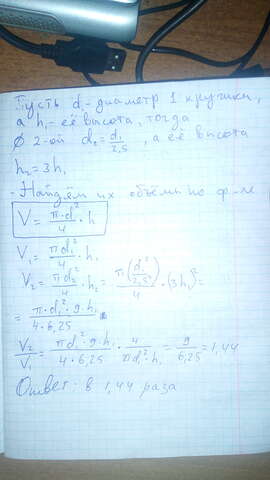 Пусть d₁ - диаметр 1 кружки,
а h₁ - её высота, тогда
∅ 2-ой d₂ = d₁/2,5, а её высота
h₂ = 3h₁
Найдём их объёмы по ф-ле
V = π·d²/4 · h
V₁ = πd₁²/4 · h₁
V₂ = πd₂²/4 · h₂ = π(d₁/2,5)²/4 · (3h₁)² =
= π·d₁²·9·h₁/4·6,25
V₂/V₁ = πd₁²·9·h₁/4·6,25 · 4/πd₁²·h₁ = 9/6,25 = 1,44
Ответ: в 1,44 раза